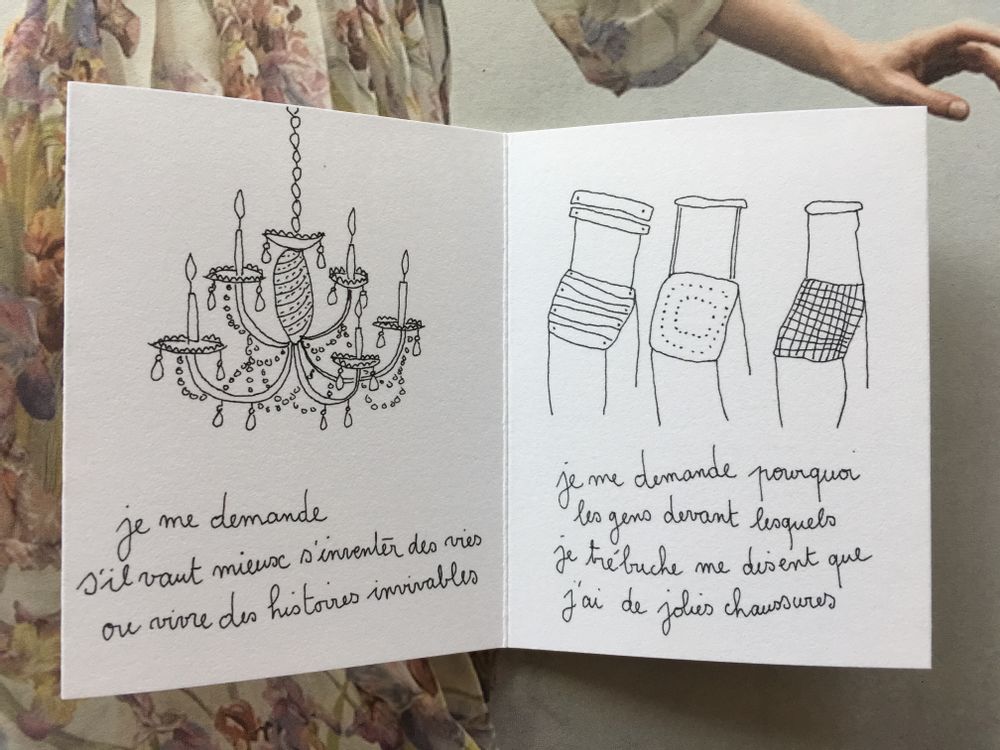 je me demande
s'il vaut mieux s'inventer des vies
ou vivre des histoires invivables
je me demande pourquoi
les gens devant lesquels
je trébuche me disent que
j'ai de jolies chaussures